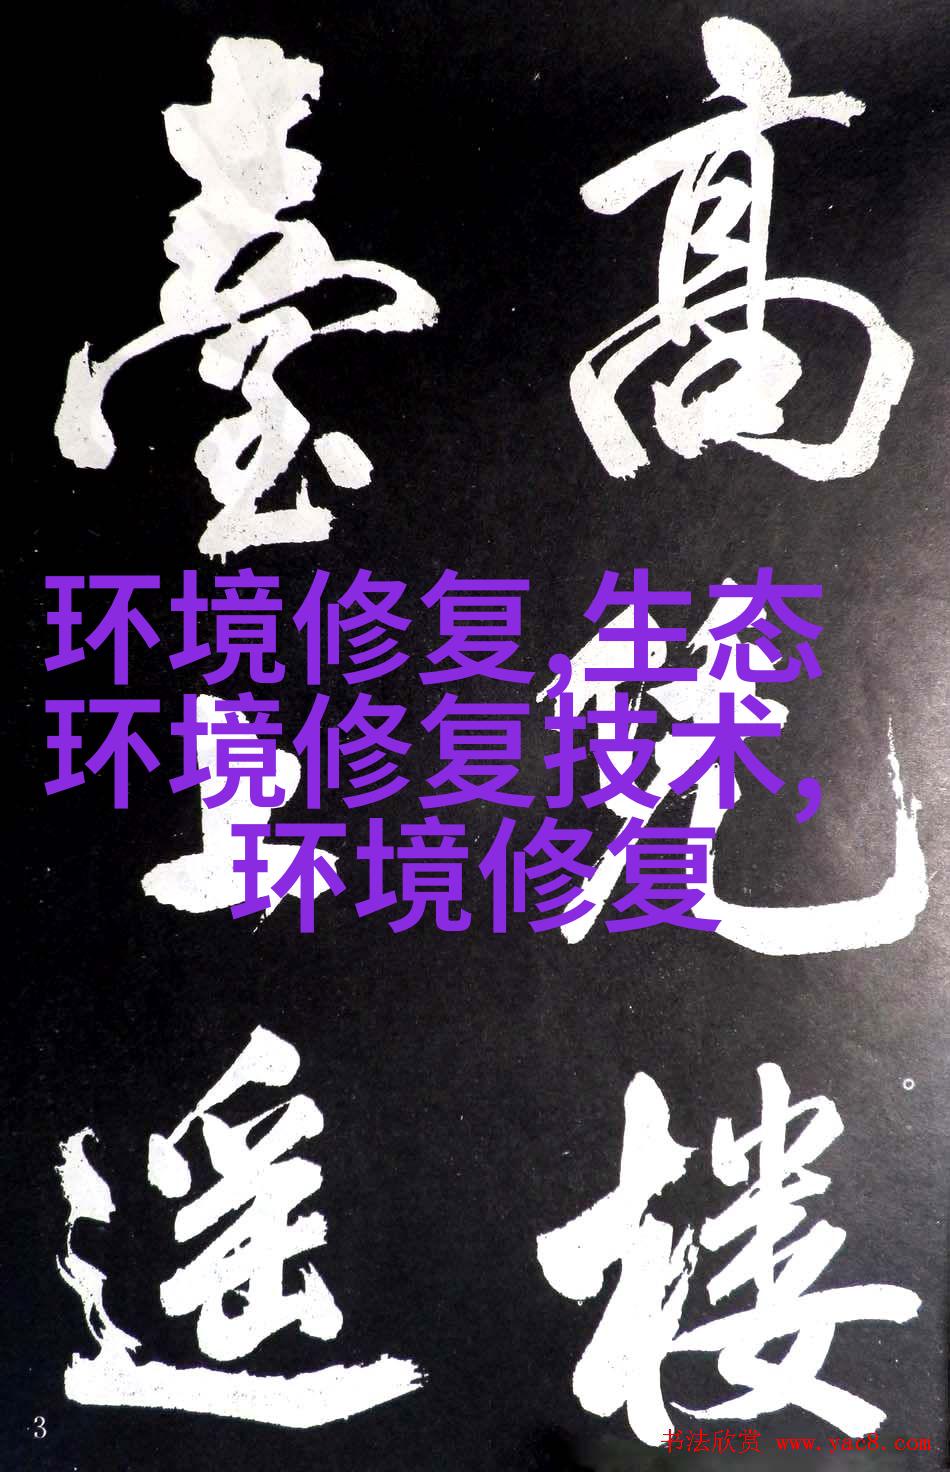 高
楼
臺
上
遥
环境修复,生态
环境修复技术,
环境修复
3
书法欣赏 www.yac8.com